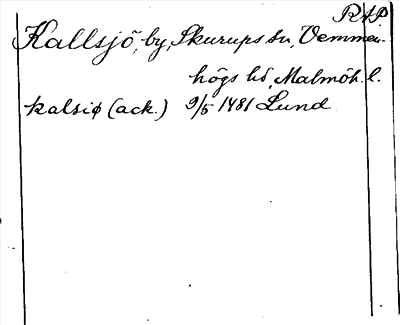 RAP
Kallsjö, by, Skurups sn, Vemmen-
högs hd, Malmöh. l.
kalsiø (ack.) 9/5 1481 Lund